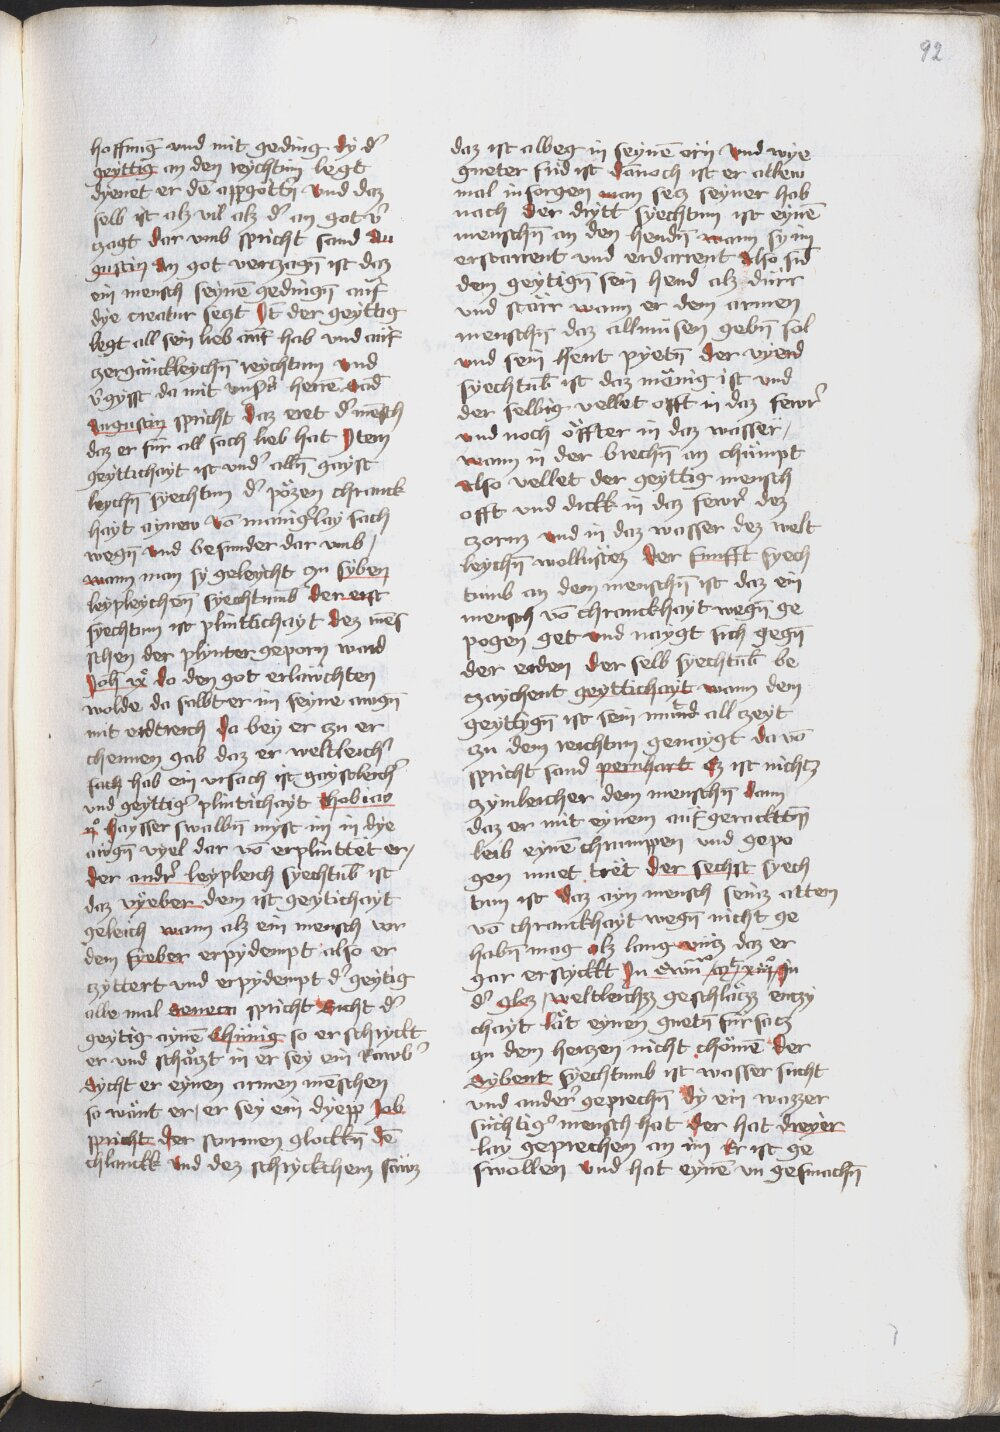 92
hoffnug̃ vnd mit geding dy d'
geyttig an den reychtum legt
dyenet er dē appgöttn̄ vnd daz
selb ist alz vil alz d' an got v'
zagt dar vmb spricht sand Au
gustin An got verczagn̄ ist daz
ein mensch seynē gedingn̄ auf
dye creatur seczt Jtē der geyttig
legt all sein lieb auf hab vnd auf
czergänckleychn̄ reychtum vnd
v'gysst da mit vnsers herrē sand
Augustin spricht daz eret d' mēsch
daz er für all sach lieb hat Jtem
geyttichayt ist vnd' alln̄ gayst
leychn̄ syechtum d' pözen chranck
hayt aynew vō manig'lay sach
wegn̄ vnd besunder dar vmb /
wann man sy geleycht zu syben
leypleychen̄ syechtumb der erst
syechtum ist plinttichayt dez mēs
schen der plynter geporn ward
Joh̄ ix° do den got erläwchten
wolde da salbt er im seyne augn̄
mit erdtreich da bey er zu er
chennen gab daz er weltleich'
sach hab ein vrsach ist gaystleich'
vnd geyttig' plinttichayt thobias
ij° haysser swalbn̄ myst im in dye
augn̄ vyel dar vō erplinttet er /
der andr' leypleich syechtūb ist
daz vyeber dem ist geytichayt
geleich wann alz ein mensch vor
dem fyeber erpydempt also er
czyttert vnd erpydempt d' geytig
alle mal Seneca spricht Sicht d'
geytig aynen Chünig so erschryckt
er vnd schäczt in er sey ein Rawb'
Sycht er eynen armen menschen
so wänt er / er sey ein dyepp Job
spricht der stimen glockn̄ dē
chlanckk vnd dez schryckchens sawz
daz ist albeg in seynē orn̄ vnd wye
gueter frid ist dānoch ist er allew
mal in sorgen man secz seyner hab
nach der drytt syechtum ist eynē
menschn̄ an den hendn̄ wann sy im
erstarrent vnd verdarrent Also sid̄
dem geytign̄ sein hend alz dürr
vnd starr wann er dem armen
menschn̄ daz allmusen gebn̄ sol
vnd sein hent pyetn̄ der vyerd
syechtūb ist daz mönig ist vnd
der selbig vellet offt in daz fewr'
vnd noch öffter in daz wasser /
wann in der brechn̄ an chümpt
Also vellet der geyttig mensch
offt vnd dickk in daz fewr' dez
czorns vnd in daz wasser dez welt
leychn̄ wollustez der funfft syech
tumb an dem menschn̄ ist daz ein
mensch vō chranckhayt wegn̄ ge
pogen get vnd naygt sich gegn̄
der erden der selb syechtūb be
czaychent geyttichayt wann dem
geyttign̄ ist sein mund all czeyt
zu dem reichtum genaygt da vō
spricht sand pernhart Ez ist nichtz
czymleicher dem menschn̄ dann
daz er mit eynem aufgeracktn̄
leib eynē chrumppen vnd gepo
gen muet trët der sechst syech
tum ist daz ayn mensch seinz atten
vō chranckhayt wegn̄ nicht ge
habn̄ mag alz lang vncz daz er
gar erstyckt Jn
d' gloz / weltleichz geschläzz enczy
chayt lät eynen guetn̄ fürsacz
zu dem herczen nicht chömē Der
Sybent syechtumb ist wasser sucht
vnd ander' geprechn̄ dy ein wazzer
süchtig' mensch hat der hat dreyer
lay geprechen an im Er ist ge
swollen vnd hat eynē vn gesmachn̄